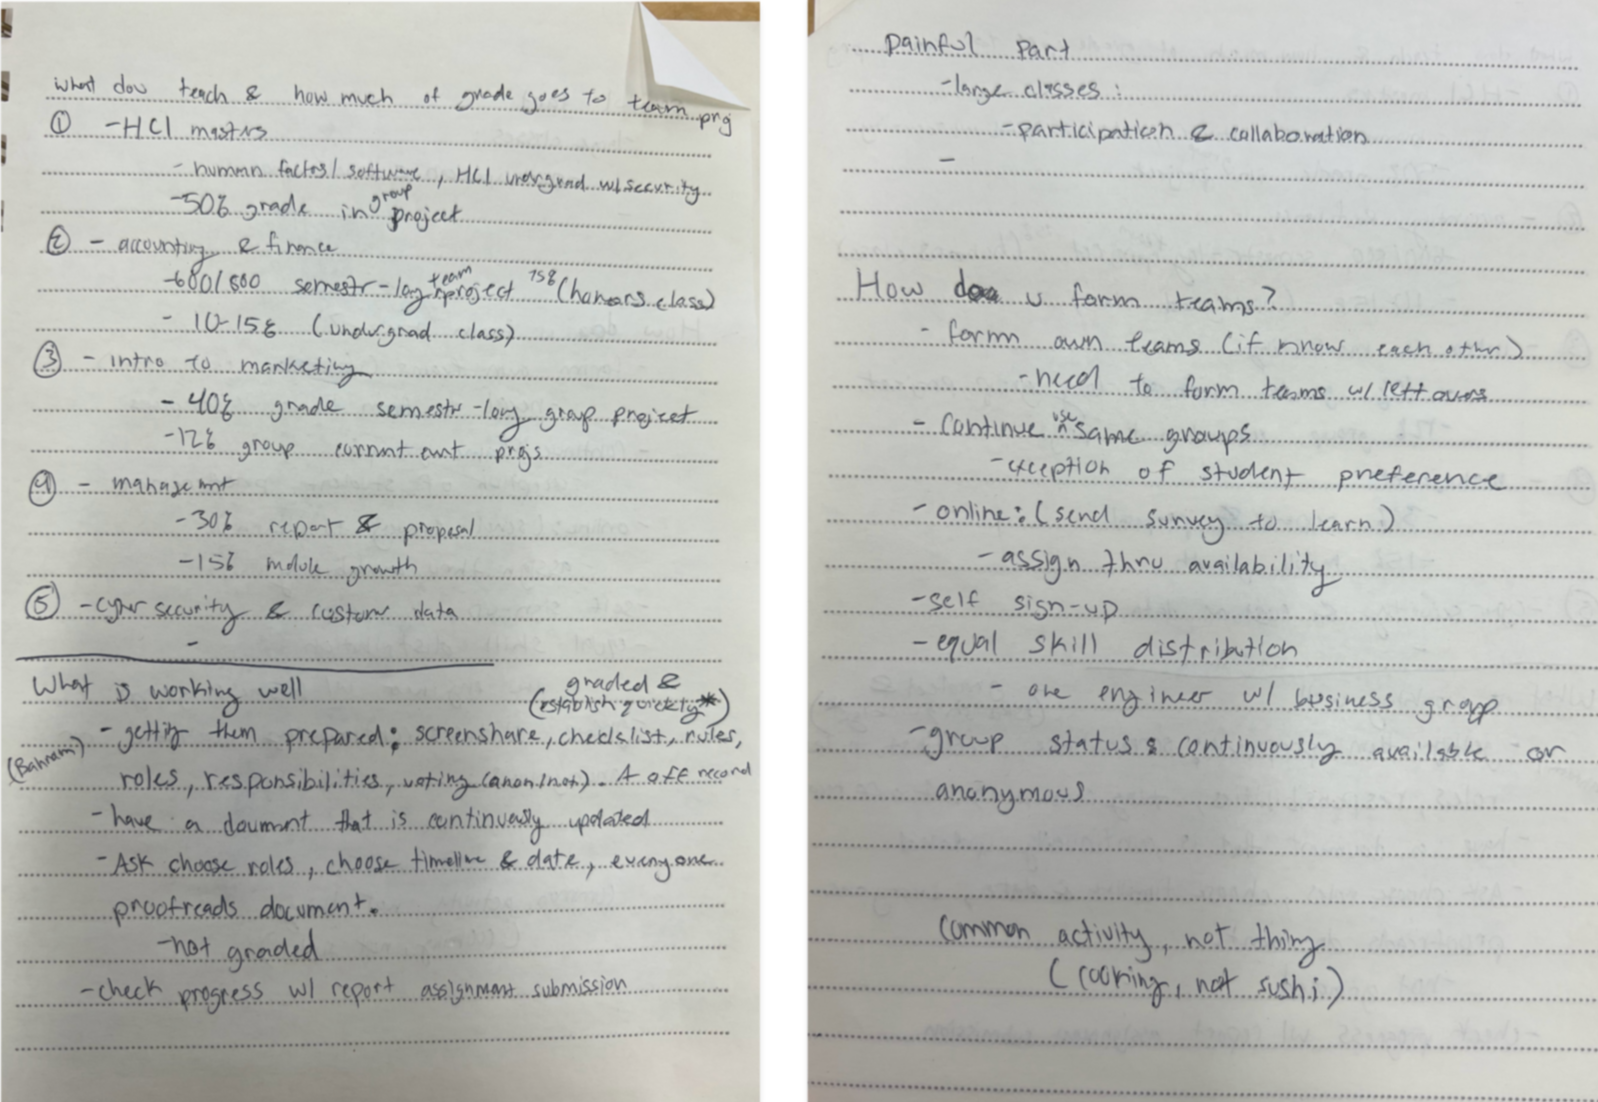 what dou teach & how much of grade goes to team prj
① - HCI mastrs
- human factors / software, HCI undrgrad w/ security
- 50% grade in group project
② - accounting & finance
- 600/800 semestr-long team project 75% (honors class)
- 10-15% (undrgrad class)
③ - intro to marketing
- 40% grade semestr-long group project
- 12% group currnt evnt projs
④ - managemnt
- 30% report & proposal
- 15% module growth
⑤ - cybr security & custom data
-
What is working well (graded & establish quickly*)
(Bahram) - getting them prepared: screenshare, checklist, rules,
roles, responsibilities, voting (anon/not). A off record
- have a doument that is continually updated
- Ask choose roles, choose timeline & date, everyone
proofreads document.
- not graded
- check progress w/ report assignment submission
painful part
- large classes:
- participation & collaboration
-
How u form teams?
- form own teams (if know each othr)
- need to form teams w/ leftovers
- continue use same groups
- exception of student preference
- online: (send survey to learn)
- assign thru availability
- self sign-up
- equal skill distribution
- one engineer w/ business group
- group status: continuously available or
anonymous
common activity, not thing
(cooking, not sushi)